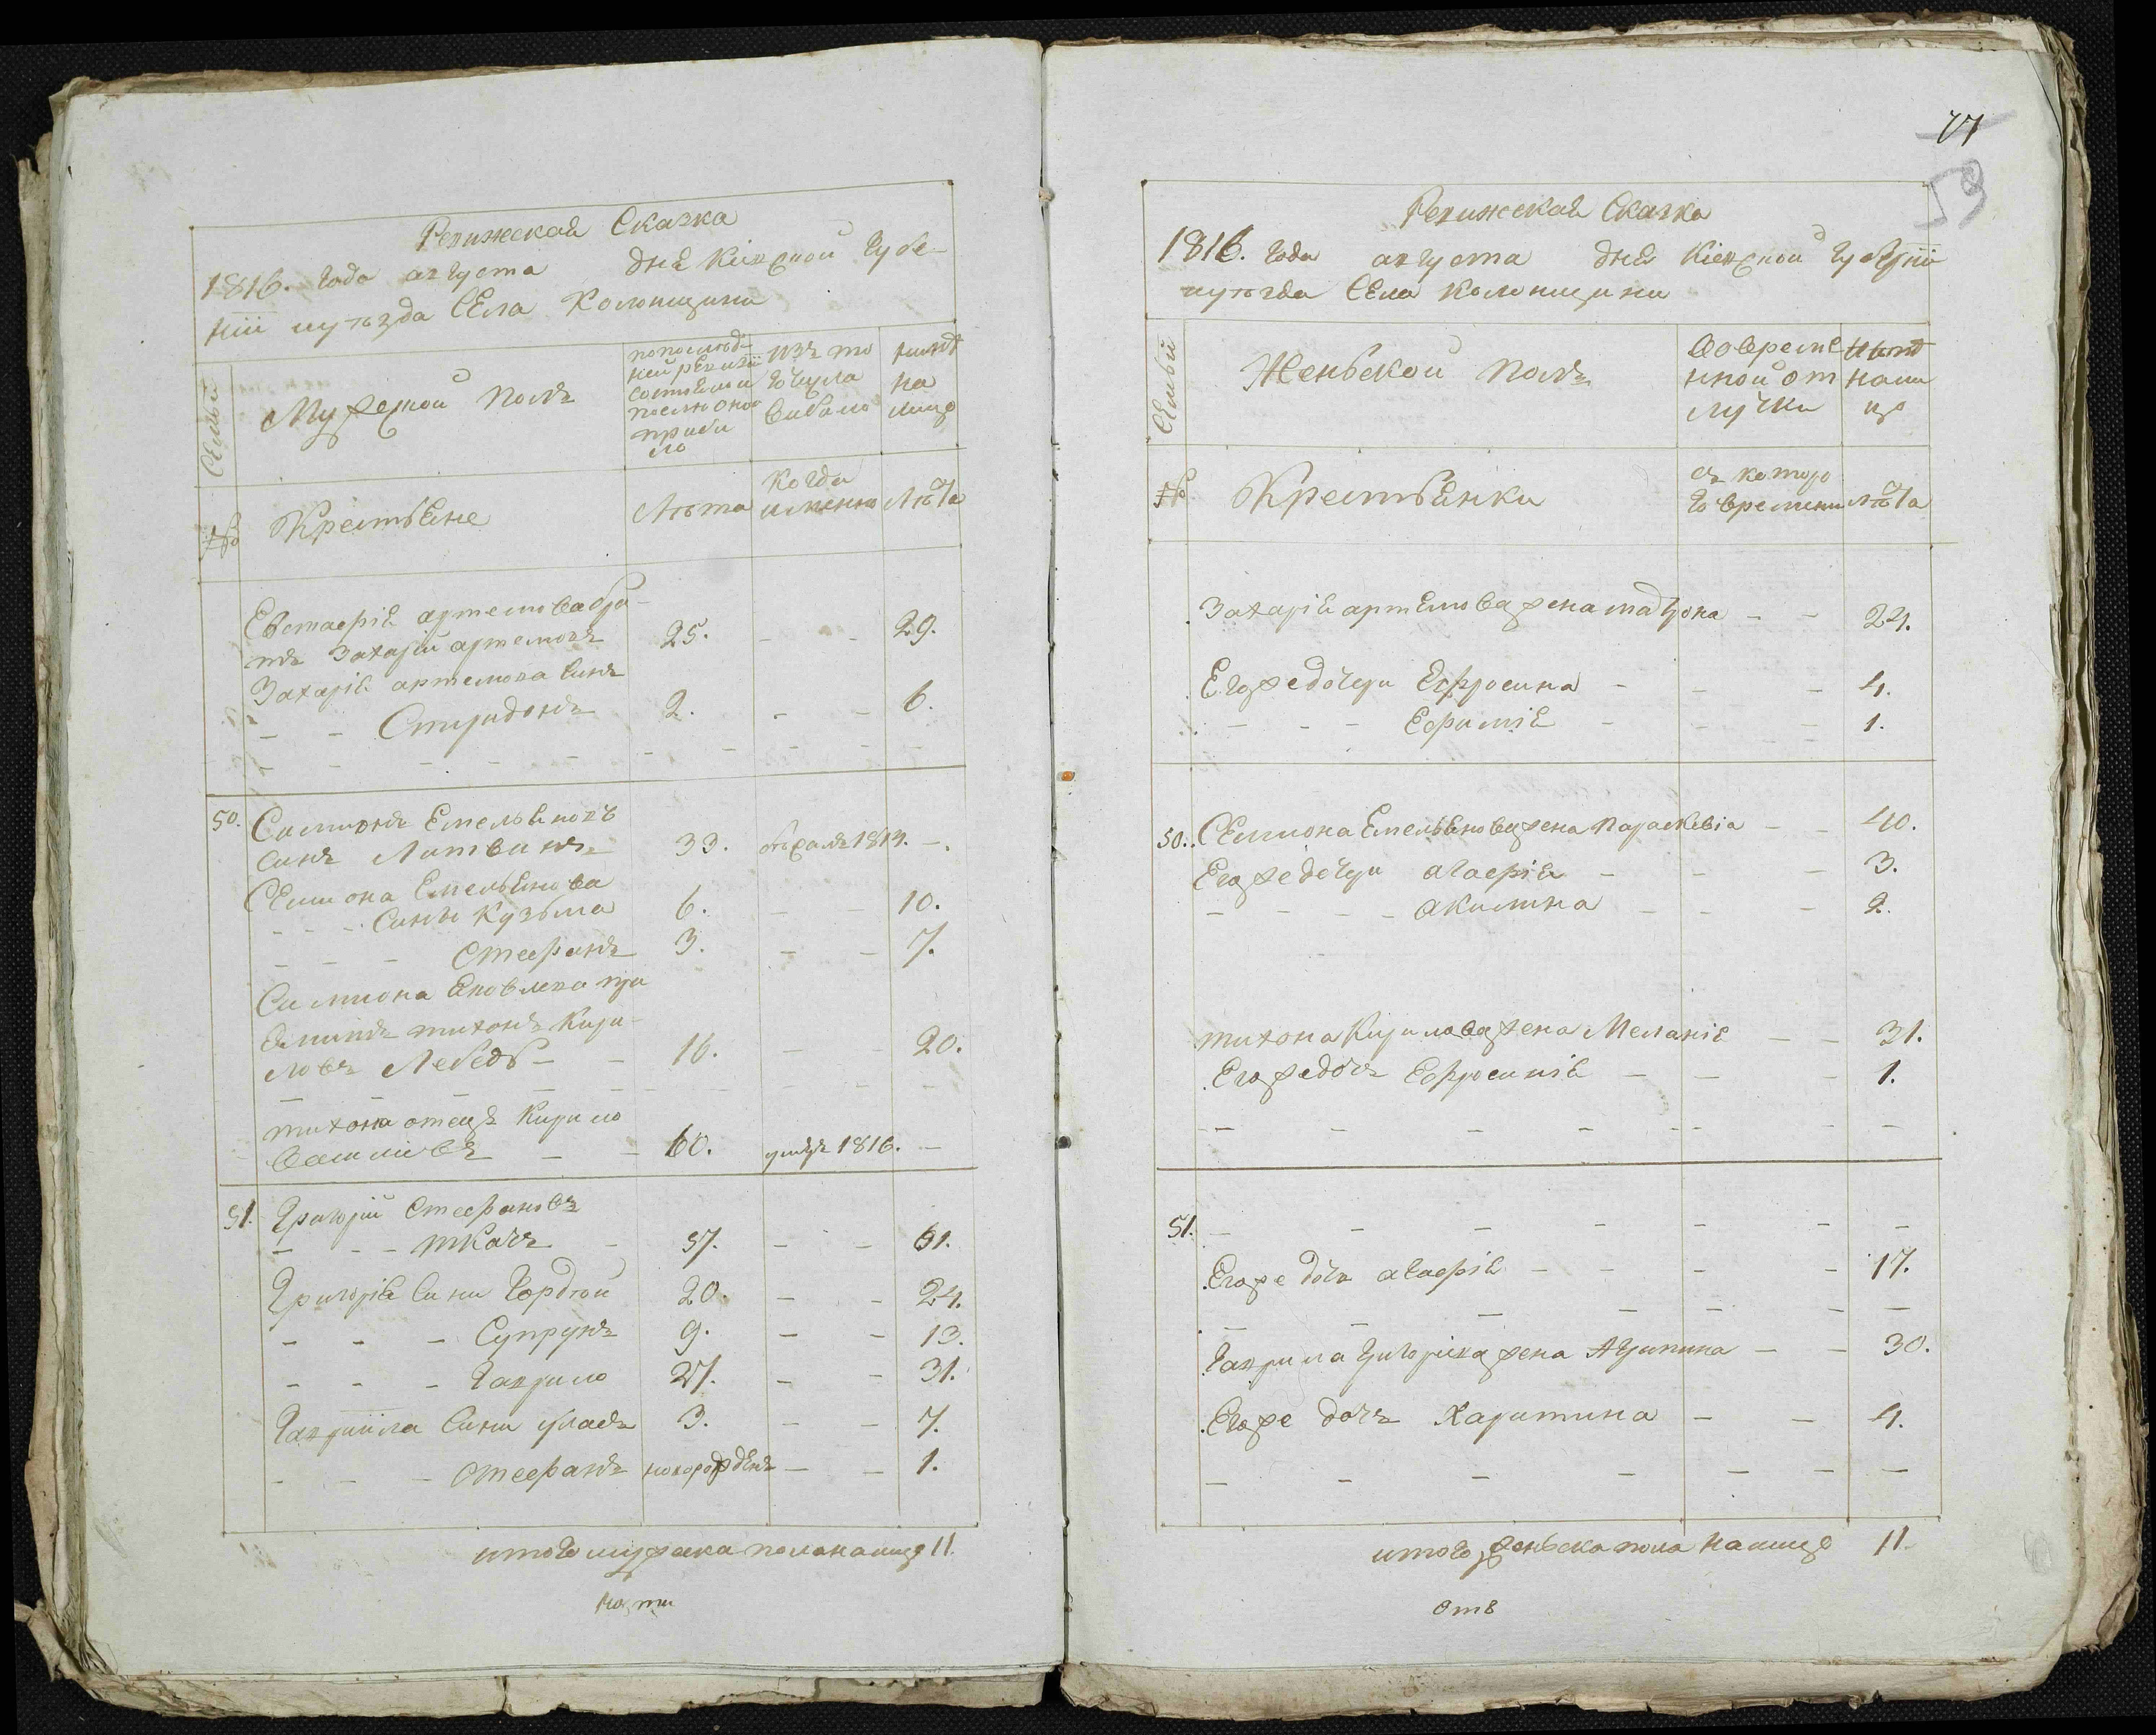 Ревижская Сказка
1816. года августа дня Кіевской губе-
ніи иуѣзда Села Колонщини
Семьи
Мужеской полъ
попослѣд
ней ревизіи
состояло и
после оной
прибы
ло
изъ то
го числа
выбыло
нынѣ
на
лицо
№
Крестьяне
Лѣта
когда
именно
Лѣта
Евстафія артемова бра-
тъ Захарій артемовъ 25. - - 29.
Захарія артемова синъ
- - Спиридонъ 2. - - 6.
50. Симионъ Емельяновъ
синъ Литвинъ 33. 1814. -.
Семиона Емельянова
- - Сины Кузьма 6. - - 10.
- - - Стефанъ 3. - - 7.
Симиона Яковлева при
емишъ тихонъ Кири-
ловъ Лебедь - - 16. - - 20.
тихона отецъ Кирило
Василіевъ - - 60. умеръ 1816. -
51. Григорій Стефановъ
- - - ткачъ - 57. - - 61.
Григорія Сини Гордѣй 20. - - 24.
- - - Супрунъ 9. - - 13.
- - - Гаврило 27. - - 31.
Гавриила Сини Власъ 3. - - 7.
- - - Стефанъ новорожденъ - - 1.
итого мужеска пола на лицо 11.
77
59
Ревижская Сказка
1816. года августа дня Кіевской губерніи
иуѣзда Села Колонщини
Семьи
Женьской полъ
Вовреме
нной от
лучки
Нынѣ
нали
цо
№
Крестьянки
съ которо
го времени
лѣта
Захарія артемова жена мадрона - - 24.
Его же дочери Ефросина - - - 4.
- - - Ефимія - - - 1.
50. Семиона Емельянова жена Параскевіа - - 40.
Его же дочери агафія - - - 3.
- - - - акилина - - - 2.
тихона Кирилова жена Меланія - - 31.
Его же дочъ Ефросинія - - - 1.
51. - - - - - - -
Его же дочъ агафія - - - - 17.
Гаврила Григоріева жена Агрипина - - 30.
Его же дочъ Харитина - - 4.
итого женьска пола на лицо 11.